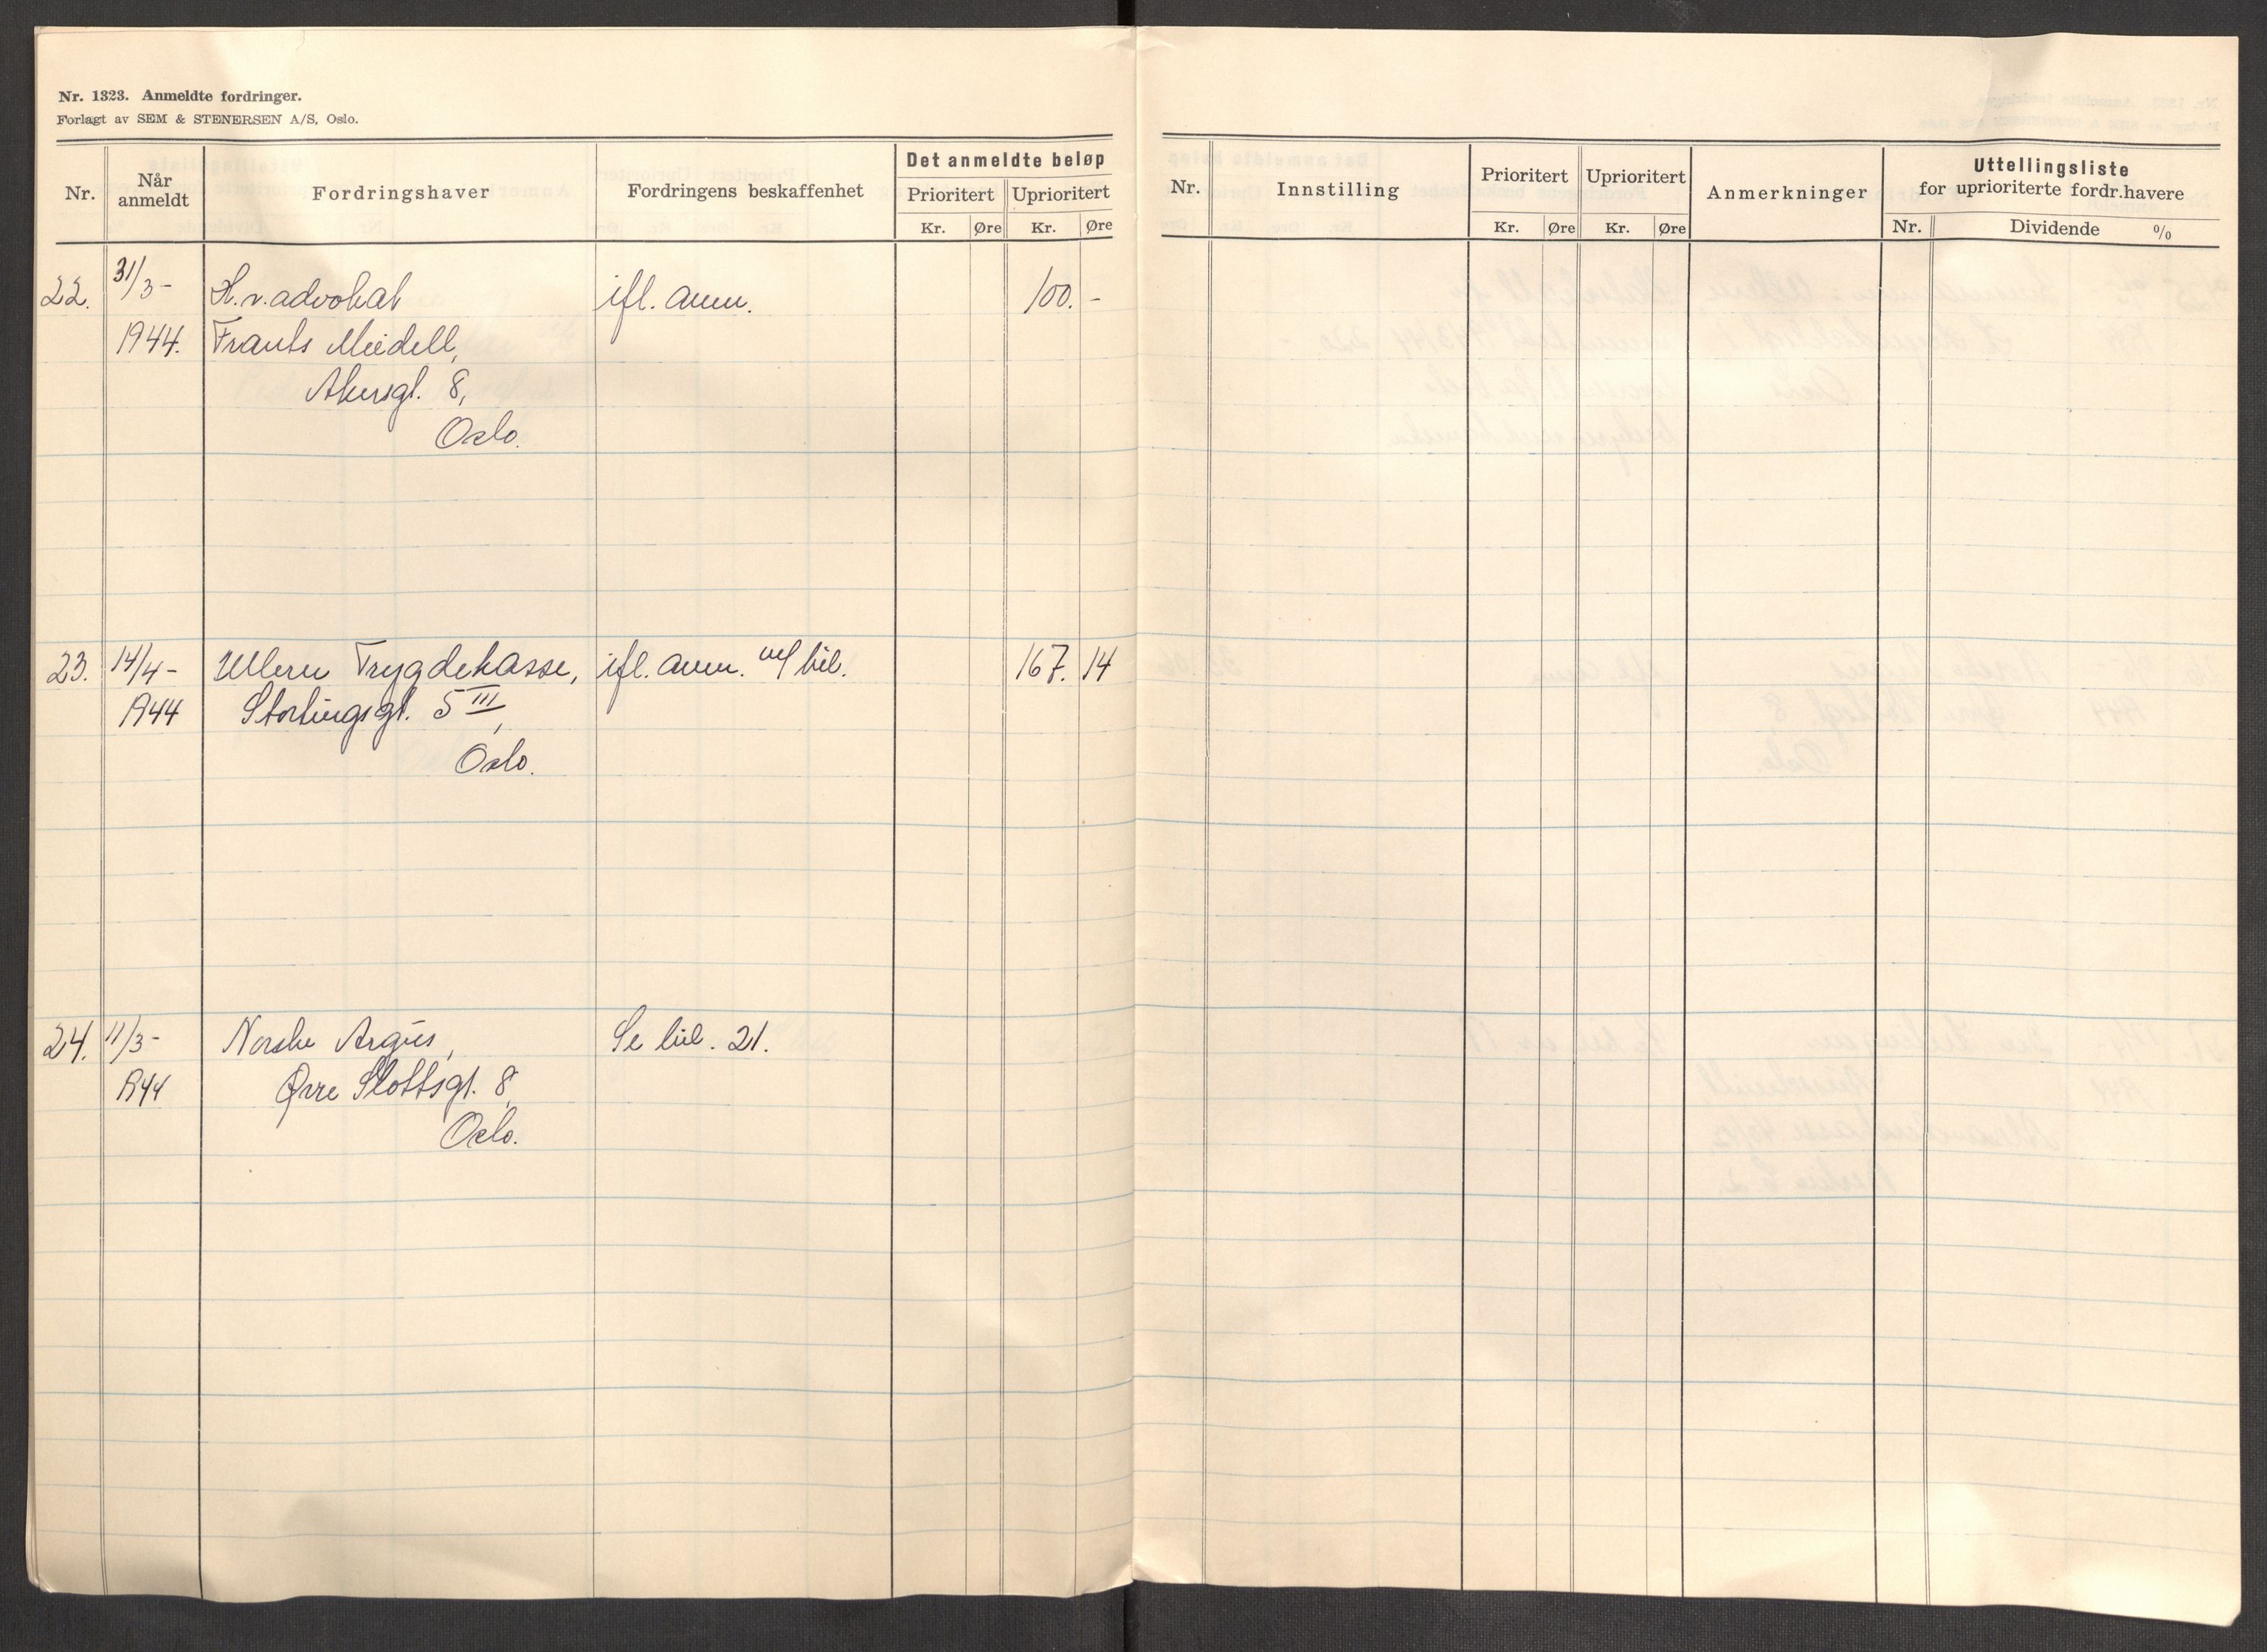 Nr. 1323. Anmeldte fordringer.
Forlagt av SEM & STENERSEN A/S, Oslo.
Nr.
Når anmeldt
Fordringshaver
Fordringens beskaffenhet
Det anmeldte beløp
Prioritert
Uprioritert
Kr. Øre Kr. Øre
22. 31/3- H.r.advokat ifl. anm. 100. -
1944. Frants Meidell,
Akersgt. 8,
Oslo.
23. 14/4- Ullern Trygdekasse, ifl. anm. m/ bil. 167. 14
1944 Stortingsgt. 5 III,
Oslo.
24. 11/3- Norske Argus, Se bil. 21.
1944 Øvre Slottsgt. 8,
Oslo.
Nr.
Innstilling
Prioritert
Uprioritert
Kr. Øre Kr. Øre
Anmerkninger
Uttellingsliste
for uprioriterte fordr.havere
Nr. Dividende %